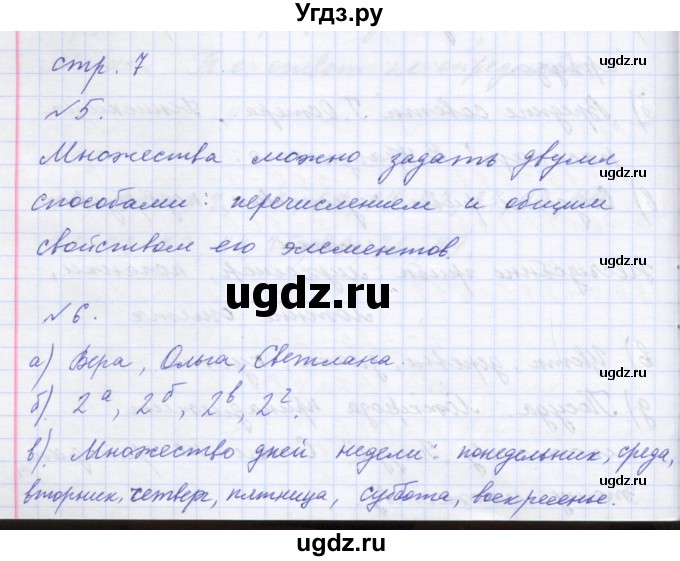 Угдз.ру
стр. 7
ugdz.ru
№5.
ugdz.ru
Множества можно задать двумя
ugdz.ru
способами: перечислением и общим
свойством его элементов.
ugdz.ru
ugdz.ru
№6.
ugdz.ru
а) Вера, Ольга, Светлана.
б) 2а, 2б, 2в, 2г.
ugdz.ru
в) Множество дней недели: понедельник, среда,
вторник, четверг, пятница, суббота, воскресенье.
ugdz.ru
ugdz.ru